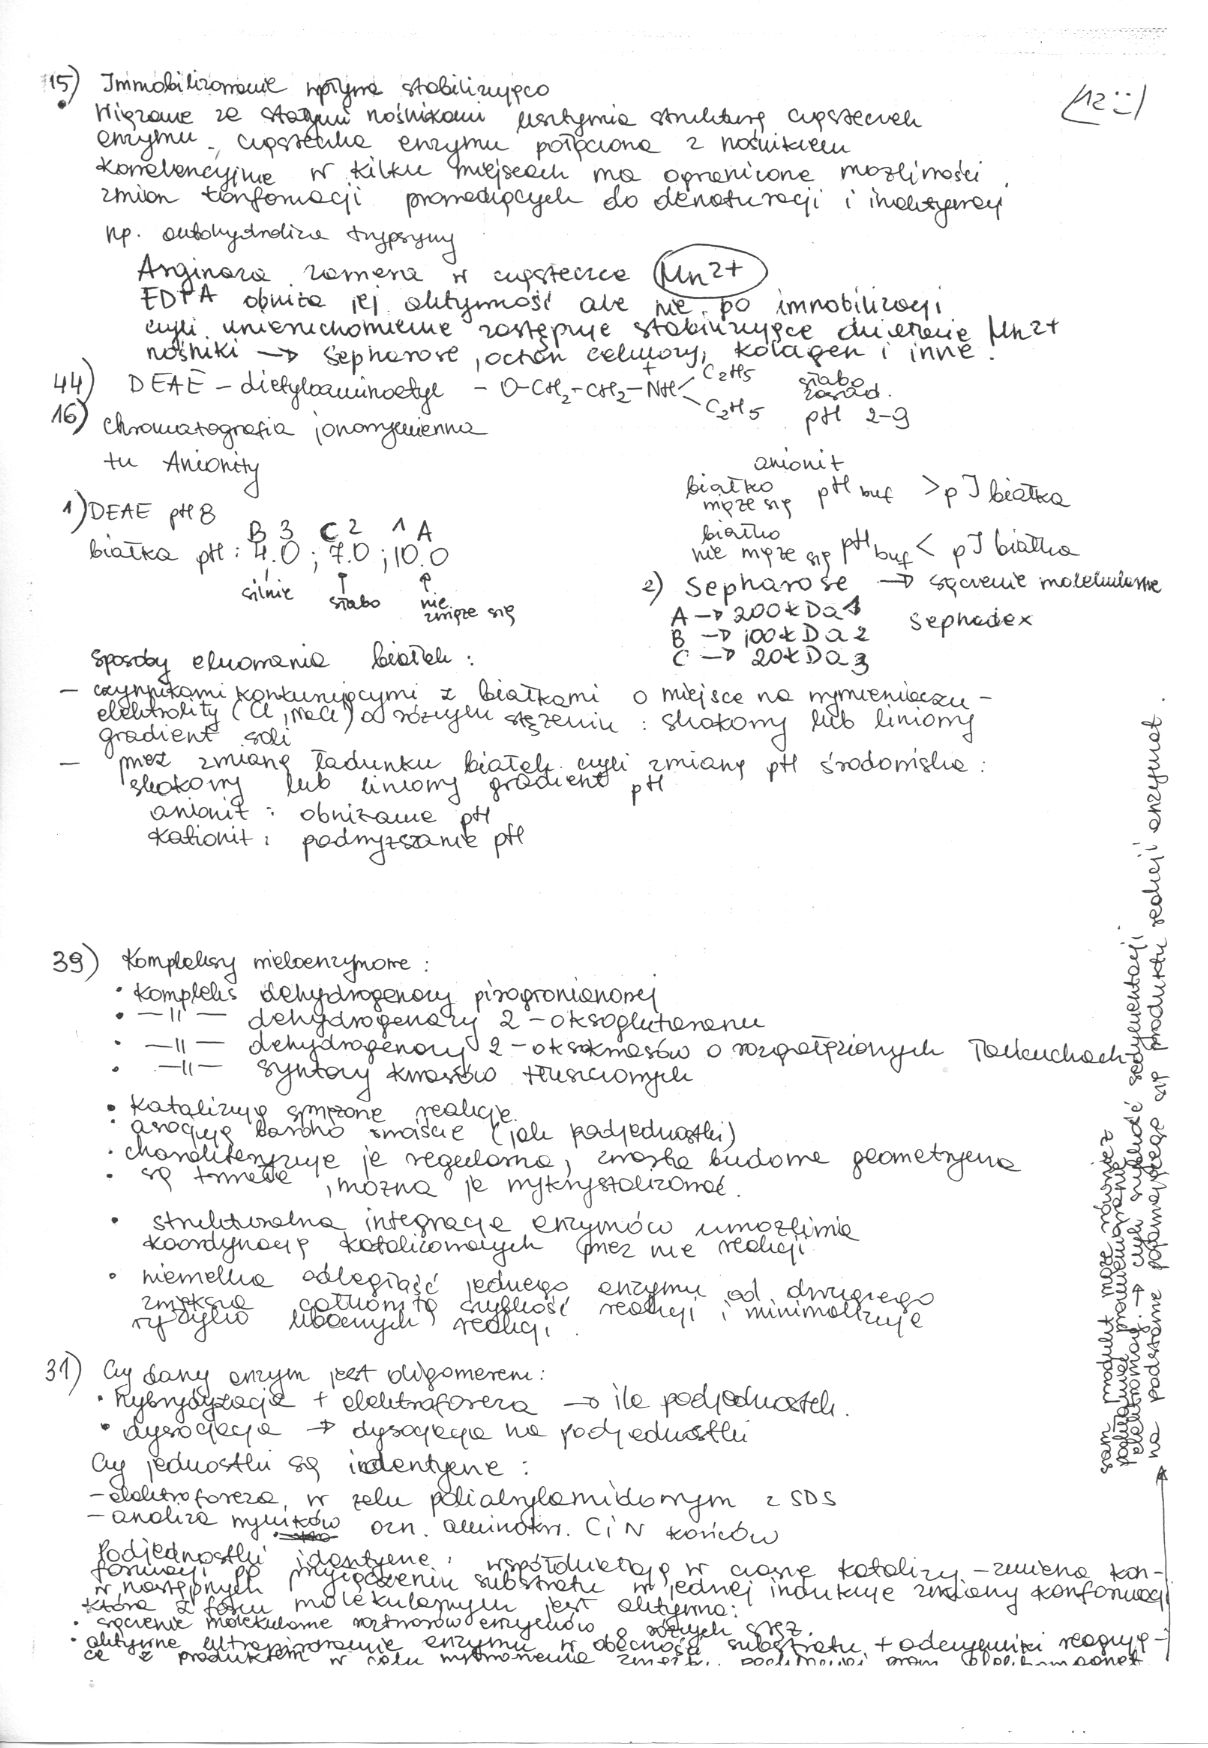 15) Immobilizowanie wpływa stabilizująco
(12 :)
Wiązanie ze stałymi nośnikami usztywnia strukturę cząsteczek
enzymu, cząsteczka enzymu połączona z nośnikiem
kowalencyjnie w kilku miejscach ma ograniczone możliwości
zmian konformacji prowadzących do denaturacji i inaktywacji
np. autohydroliza trypsyny
Arginaza zawiera w cząsteczce Mn2+
EDTA obniża jej aktywność ale nie po immobilizacji
czyli unieruchomienie zastępuje stabilizujące działanie Mn2+
nośniki → Sepharose, octan celulozy, kolagen i inne.
44) DEAE – dietyloaminoetyl – O-CH2-CH2-NH+ C2H5 C2H5 słabo zasad. pH 2-9
16) Chromatografia jonowymienna
tu Anionity
anionit
białko wiąże się pH buf > pI białka
białko nie wiąże się pH buf < pI białka
1) DEAE pH 8
B 3 C 2 1 A
białka pH: 4.0 ; 7.0 ; 10.0
silnie słabo nie wiąże się
2) Sepharose → sączenie molekularne
A → 200kDa 1 Sephadex
B → 100kDa 2
C → 20kDa 3
Sposoby eluowania białek:
– czynnikami konkurującymi z białkami o miejsce na wymieniaczu –
elektrolity (Cl, NaCl) o różnym stężeniu: skokowy lub liniowy
gradient soli
– przez zmianę ładunku białek czyli zmianę pH środowiska:
skokowy lub liniowy gradient pH
anionit: obniżanie pH
kationit: podwyższanie pH
39) Kompleksy wieloenzymowe:
• kompleks dehydrogenazy pirogronianowej
• —||— dehydrogenazy 2-oksoglutaranu
• —||— dehydrogenazy 2-oksokwasów o rozgałęzionych łańcuchach
• —||— syntazy kwasów tłuszczowych
• katalizują sprzężone reakcje
• asocjują bardzo swoiście (jak podjednostki)
• charakteryzuje je regularna, zwarta budowa geometryczna
• są trwałe, można je wykrystalizować.
• strukturalna integracja enzymów umożliwia
koordynację katalizowanych przez nie reakcji
• niewielka odległość jednego enzymu od drugiego
zwiększa całkowitą szybkość reakcji i minimalizuje
ryzyko ubocznych reakcji.
31) Czy dany enzym jest oligomerem:
• hybrydyzacja + elektroforeza → ile podjednostek.
• dysocjacja → dysocjacja na podjednostki
Czy jednostki są identyczne:
– elektroforeza w żelu poliakrylamidowym z SDS
– analiza wyników ozn. aminokw. C i N końców
Podjednostki identyczne: współdziałają w czasie katalizy – zmiana kon-
formacji po przyłączeniu substratu w jednej indukuje zmiany konformacji
w następnych
która z form molekularnych jest aktywna:
• sączenie molekularne roztworów enzymów o różnych stęż.
• aktywne ultrawirowanie enzymu w obecności substratu + odczynniki reagują-
ce z produktem w celu
sam produkt może również
elektromag. → czyli szybkość sedymentacji
na podstawie pojawiającego się produktu reakcji enzymat.